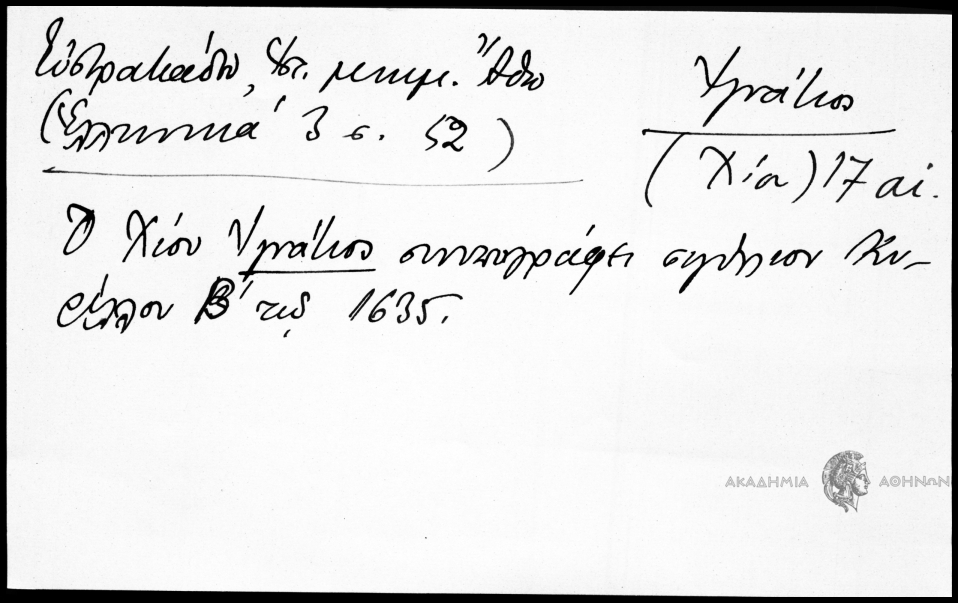 Εὐστρατιάδου, Ἱστ. μνημ. Ἄθω
(Ἑλληνικά 3 σ. 52)
Ἰγνάτιος
(Χίου) 17 αἰ.
Ὁ Χίου Ἰγνάτιος συνυπογράφει σιγίλλιον Κυ-
ρίλλου Β' τῷ 1635.
ΑΚΑΔΗΜΙΑ ΑΘΗΝΩΝ